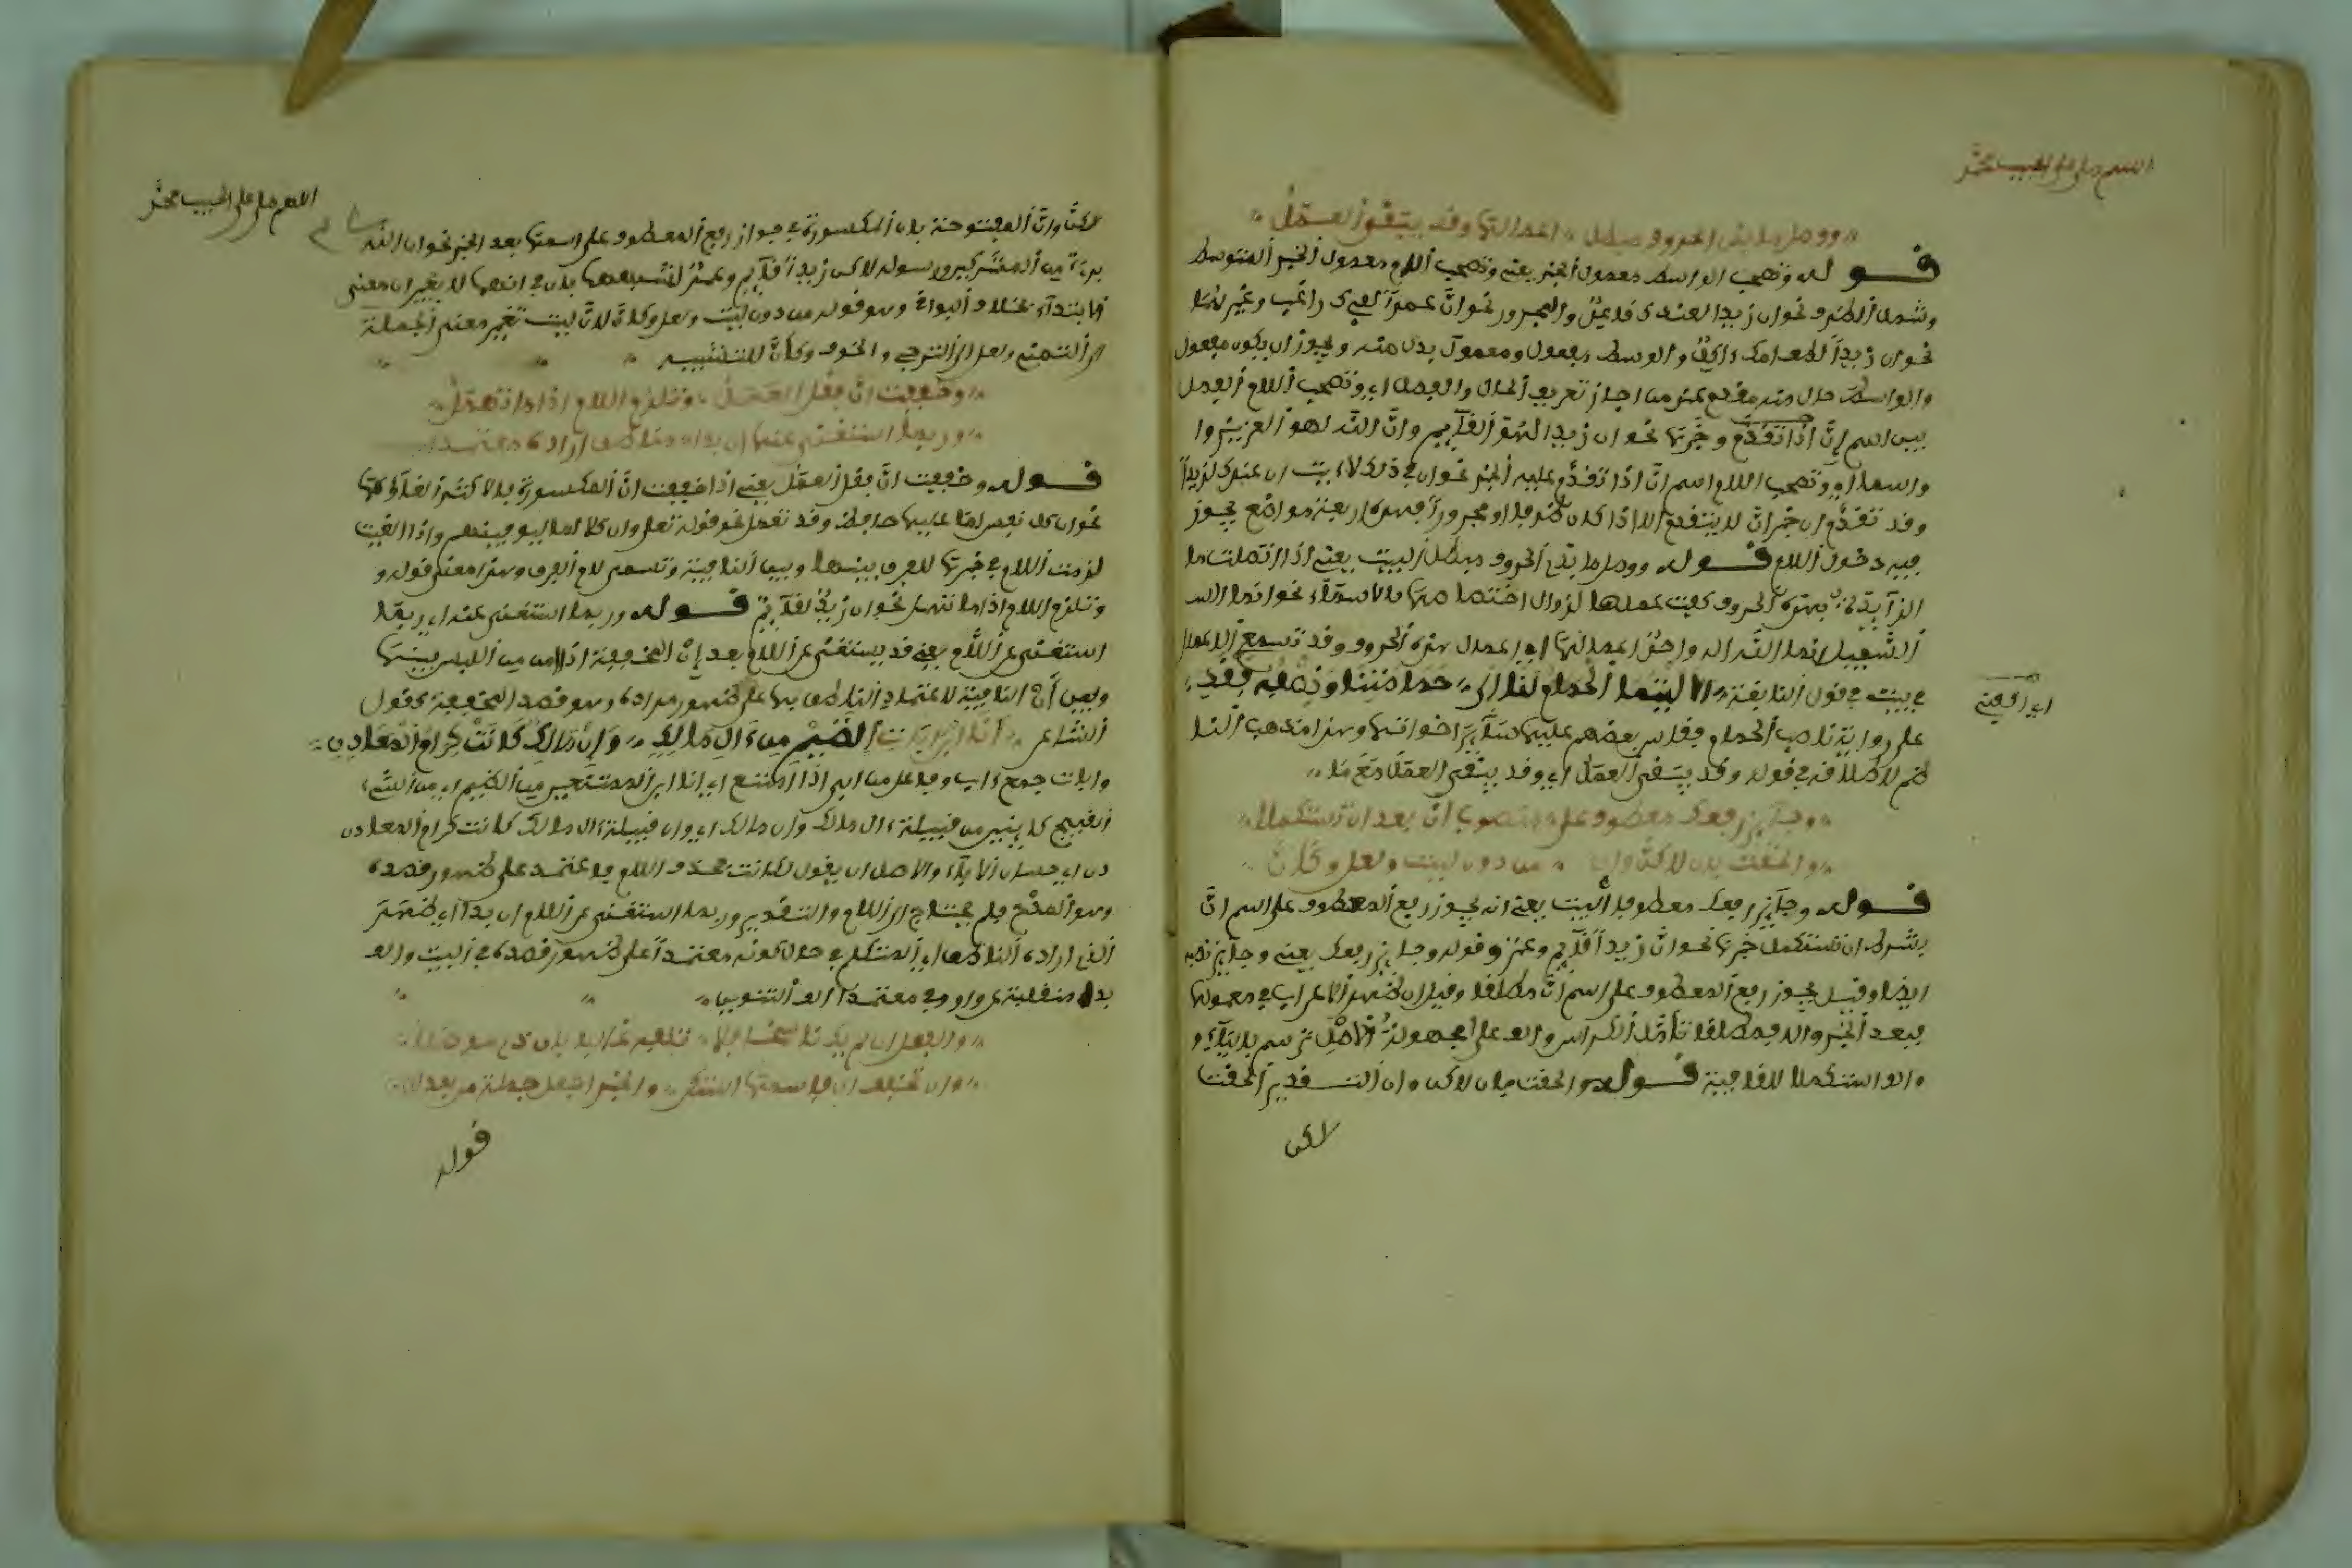 اللهم صل على الحبيب محمد
ووصل ما بذي الحروف مبطل اعمالها وقد يبقى العمل
قوله وتصحب الواسط معمول الخبر يعني وتصحب اللام معمول الخبر المتوسط
وشمل الظرف نحو ان زيدا لعندك قائم والمجرور نحو ان عمرا لفيك راغب وغيرهما
نحو ان زيدا لطعامك ءاكل والوسط مفعول ومعمول بدل منه ويجوز ان يكون مفعول
والواسط حال منه مقدم على من اجاز تعريف الحال والفصل اي وتصحب اللام الفصل
بين اسم ان اذا تقدم وخبرها نحو ان زيدا لهو القآيم وان الله لهو العزيز وا
واسما اي وتصحب اللام اسم ان اذا تقدم عليه الخبر نحو ان في ذلك لاية ان عندك لزيدا
وقد تقدم ان خبر ان لا يتقدم الا اذا كان ظرفا او مجرورا فهذه اربعة مواضع يجوز
فيه دخول اللام قوله ووصل ما بذي الحروف مبطل البيت يعني اذا اتصلت ما
الزآيدة بهذه الحروف كفت عملها لزوال اختصاصها بالاسمآء نحو انما الله
في بيت في قول النابغة الا ليتما الحمام لنا الى حمامتنا ونصفه فقد
على رواية ناصب الحمام وقاس بعضهم عليها سآير اخواتها وهذا مذهب النا
ظم لاطلاقه في قوله وقد يبقى العمل اي وقد يبقى العمل مع ما
وجآيز رفعك معطوفا على منصوب ان بعد ان تستكملا
والحقت بان لاكن وان من دون ليت ولعل وكان
قوله وجآيز رفعك معطوفا البيت يعني انه يجوز رفع المعطوف على اسم ان
بشرط ان تستكمل خبرها نحو ان زيدا قآيم وعمرو وقوله وجايز رفعك يعني وجايز نصبه
ايضا وقيل يجوز رفع المعطوف على اسم ان مطلقا وقيل ان ظهر الاعراب في معمولها
والف استكملا للقافية قوله والحقت بان لاكن وان التقدير الحقت
لاكن
اللهم صل على الحبيب محمد
لاكن وان المفتوحة بان المكسورة في جواز رفع المعطوف على اسمها بعد الخبر نحو ان الله
بريء من المشركين ورسوله لاكن زيدا قآيم وعمرو لشبههما بان في انهما لا يغيران معنى
الابتداء بخلاف البواقي وهو قوله من دون ليت ولعل وكان لان ليت تغير معنى الجملة
الى التمني ولعل الى الترجي والخوف وكان للتشبيه
وخففت ان فقل العمل وتلزم اللام اذا ما تهمل
وربما استغني عنها ان بدا ما ناطق اراده معتمدا
قوله وخففت ان فقل العمل يعني اذا خففت ان المكسورة فالاكثر الغآؤها
نحو ان كل نفس لما عليها حافظ وقد تعمل نحو قوله تعلى وان كلا لما ليوفينهم واذا الغيت
لزمت اللام في خبرها للفرق بينها وبين النافية وتسمى لام الفرق وهذا معنى قوله و
وتلزم اللام اذا ما تهمل نحو ان زيد لقآيم قوله وربما استغني عنها اي ربما
استغني عن اللام يعني قد يستغنى عن اللام بعد ان المخففة اذا امن من اللبس بينها
وبين ان النافية لاعتماد الناطق بها على ظهور مراده وهو قصد المخففة كقول
الشاعر انا ابن ابات الضيم من ءال مالك وان مالك كانت كرام المعادن
وابات جمع ءاب وفاعل من ابى اذا امتنع اي انا ابن الممتنعين من الضيم اي من الشيء
القبيح كاينين من قبيلة ءال مالك وان مالك اي وان قبيلة ءال مالك كانت كرام المعادن
دن اي حسان الاباء والاصل ان يقول لكانت فحذف اللام فاعتمد على ظهور قصده
وهو المدح فلم يحتاج الى اللام والتقدير وربما استغني عن اللام ان بدا اي ظهر
الذي اراده الناطق اي المتكلم في حال كونه معتمدا على ظهور قصده في البيت والف
بدا منقلبة عن واو وفي معتمدا الف التنوين
والفعل ان لم يك ناسخا فلا تلفيه غالبا بان ذي موصلا
وان تخفف ان فاسمها استكن والخبر اجعل جملة من بعد ان
قوله